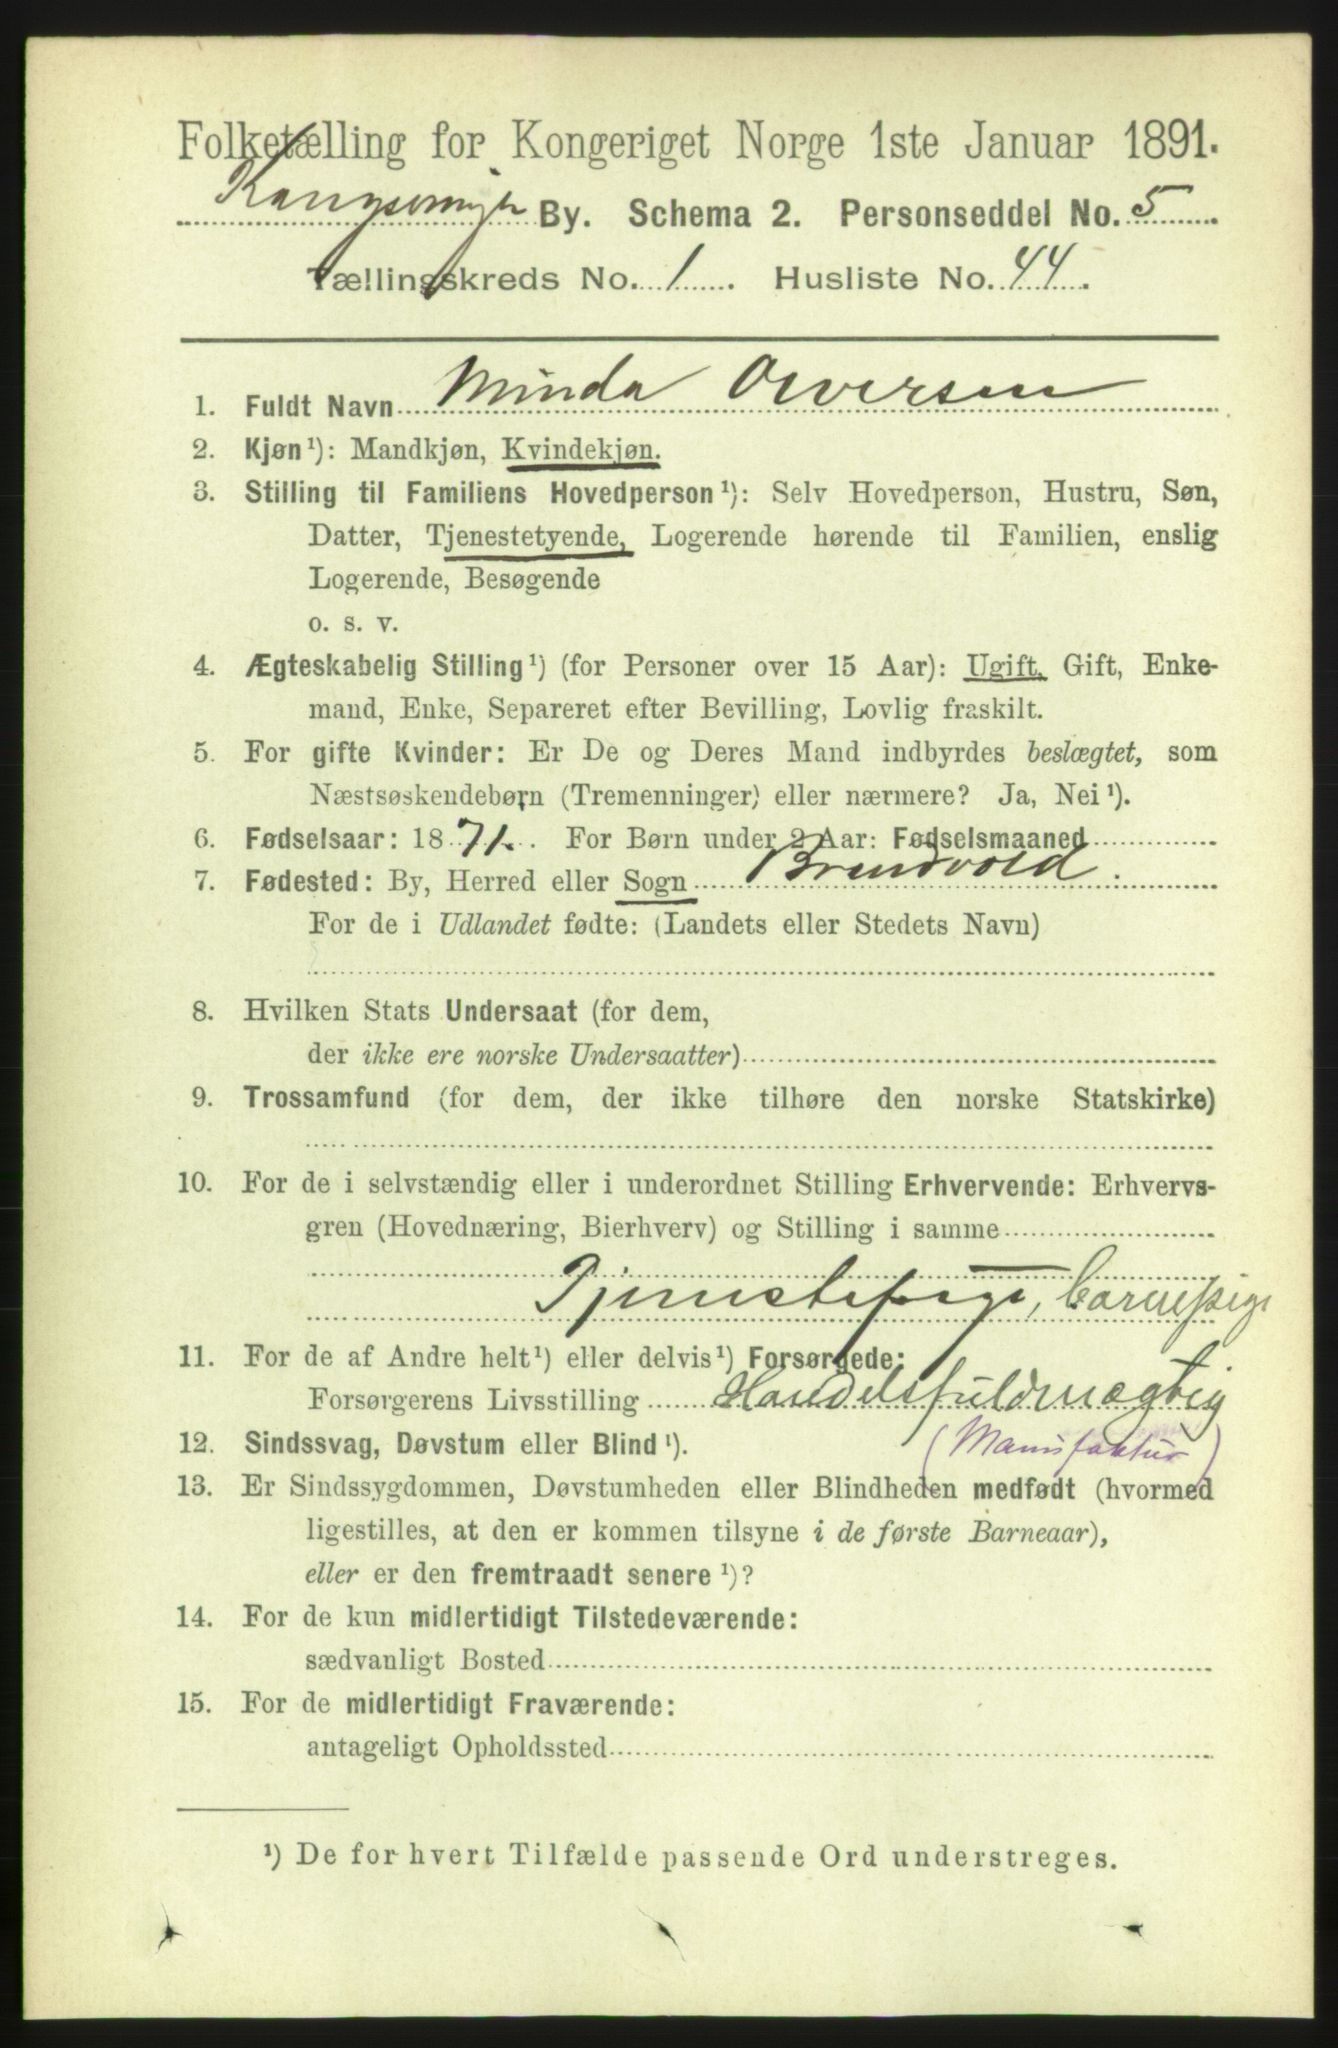 Folketælling for Kongeriget Norge 1ste Januar 1891.
Kongsvinger By. Schema 2. Personseddel No. 5
Tællingskreds No. 1. Husliste No. 44.
1. Fuldt Navn Minda Oversen
2. Kjøn¹): Mandkjøn, Kvindekjøn.
3. Stilling til Familiens Hovedperson¹): Selv Hovedperson, Hustru, Søn,
Datter, Tjenestetyende, Logerende hørende til Familien, enslig
Logerende, Besøgende
o. s. v.
4. Ægteskabelig Stilling¹) (for Personer over 15 Aar): Ugift, Gift, Enke-
mand, Enke, Separeret efter Bevilling, Lovlig fraskilt.
5. For gifte Kvinder: Er De og Deres Mand indbyrdes beslægtet, som
Næstsøskendebørn (Tremenninger) eller nærmere? Ja, Nei¹).
6. Fødselsaar: 1871. For Børn under 2 Aar: Fødselsmaaned
7. Fødested: By, Herred eller Sogn Brandvold.
For de i Udlandet fødte: (Landets eller Stedets Navn)
8. Hvilken Stats Undersaat (for dem,
der ikke ere norske Undersaatter)
9. Trossamfund (for dem, der ikke tilhøre den norske Statskirke)
10. For de i selvstændig eller i underordnet Stilling Erhvervende: Erhvervs-
gren (Hovednæring, Bierhverv) og Stilling i samme
Tjenestepige, barnepige
11. For de af Andre helt¹) eller delvis¹) Forsørgede:
Forsørgerens Livsstilling Handelsfuldmægtig
12. Sindssvag, Døvstum eller Blind¹). (Manufaktur)
13. Er Sindssygdommen, Døvstumheden eller Blindheden medfødt (hvormed
ligestilles, at den er kommen tilsyne i de første Barneaar),
eller er den fremtraadt senere¹)?
14. For de kun midlertidigt Tilstedeværende:
sædvanligt Bosted
15. For de midlertidigt Fraværende:
antageligt Opholdssted
¹) De for hvert Tilfælde passende Ord understreges.